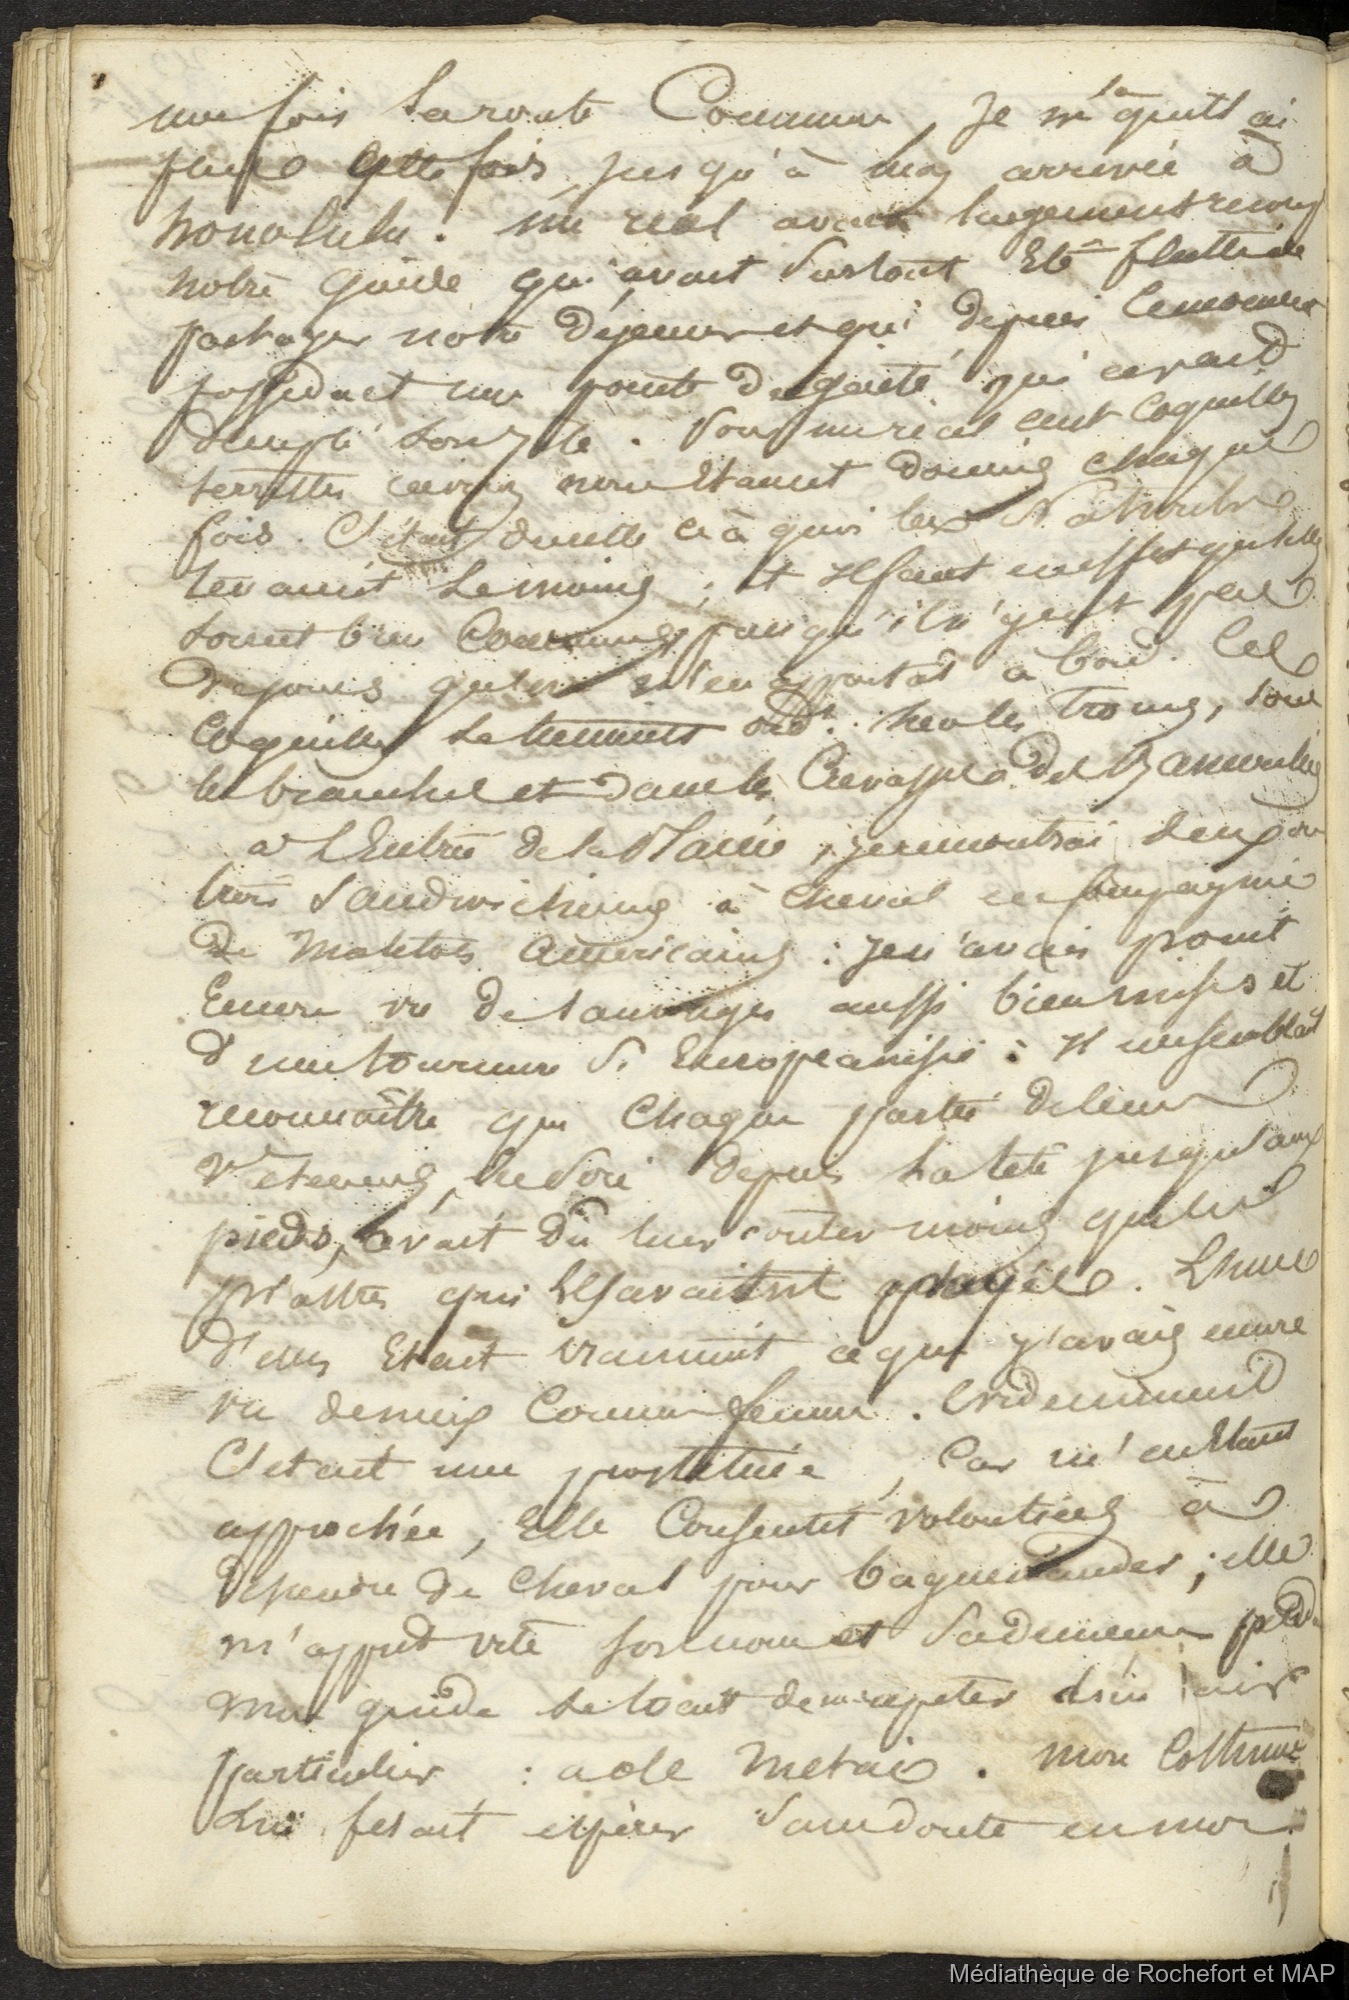 une fois la route Commune, Je ne la quittai
plus cette fois jusqu'à mon arrivée à
honolulu. un real avait largement recomp
notre guide qui avait surtout Eté flatté de
partager notre Déjeuner et qui depuis le moment
possedait une pointe de gaieté qui avait
doublé son zèle. Pour un real cent Coquilles
terrestres environ nous Etaient donnés chaque
fois. C'était ce à quoi les
tenaient le moins; et il faut en effet qu'elles
soient bien Communes puisqu'il n'y eut pas
De jours qu'on n'en apportat à bord. Ces
Coquilles se tiennent ordt. sur les troncs, sous
les branches et dans les Crevasses des
a L'Entrée de la Plaine, je rencontrai deux ou
trois Sandwichiens à Cheval en Compagnie
De Matelots Américains: je n'avais point
Encore vu de sauvages aussi bien mises et
d'une tournure si Européanisée: Il me semblait
reconnaître que Chaque partie de leurs
Vetemens de soie depuis la tete jusqu'aux
pieds, avait dû leur couter moins que les
piastres qui les avaient payés. L'une
d'elles Etait vraiment ce que j'avais encore
vu de mieux Comme femme. Evidemment
C'etait une prostituée, Car m'en Etant
approchée, Elle Consentit volontiers à
descendre de Cheval pour baguenauder; elle
m'apprit vite son nom et sa demeure
Mon guide se tuait de me repeter d'un air
particulier: aole metai. Mon Costume
Lui fesait espérer sans doute en moi
Médiathèque de Rochefort et MAP